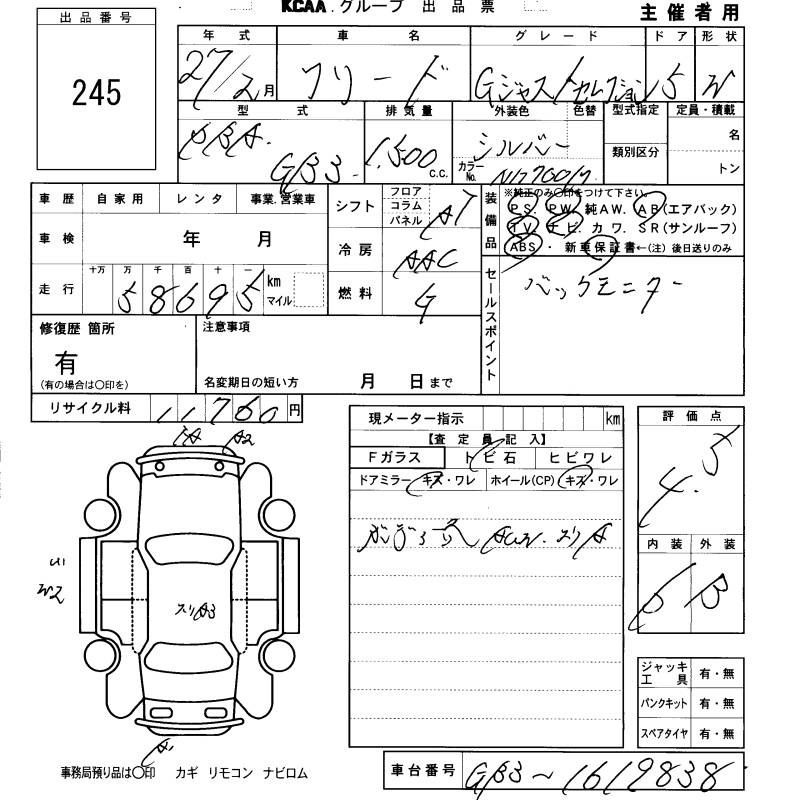 KCAA.グループ 出品票
主催者用
出品番号
245
年式 車名 グレード ドア 形状
27/2月 フリード Gジャストセレクション 5 W
型式 排気量 外装色 色替 型式指定 定員・積載
DBA. GB3. 1.500 c.c. シルバー
カラーNo. NH700M
類別区分
名
トン
車歴 自家用 レンタ 事業.営業車
車検 年 月
走行 十万 万 千 百 十 一
58695 km マイル
シフト フロア コラム パネル AT
冷房 AAC
燃料 G
装備品
※純正のみ〇印をつけて下さい。
PS. PW. 純AW. AB(エアバック)
TV. ナビ. カワ. SR(サンルーフ)
ABS ・ 新車保証書←(注) 後日送りのみ
セールスポイント
バックモニター
修復歴 箇所
有
(有の場合は〇印を)
注意事項
名変期日の短い方 月 日まで
リサイクル料 11760円
現メーター指示 km
【査定員記入】
Fガラス トビ石 ヒビワレ
ドアミラー キズ・ワレ ホイール(CP) キズ・ワレ
AUW. スリA
評価点
4.5
内装 外装
B B
A2
W2
スリA3
A
ジャッキ 工具 有・無
パンクキット 有・無
スペアタイヤ 有・無
事務局預り品は〇印 カギ リモコン ナビロム
車台番号 GB3~1619838